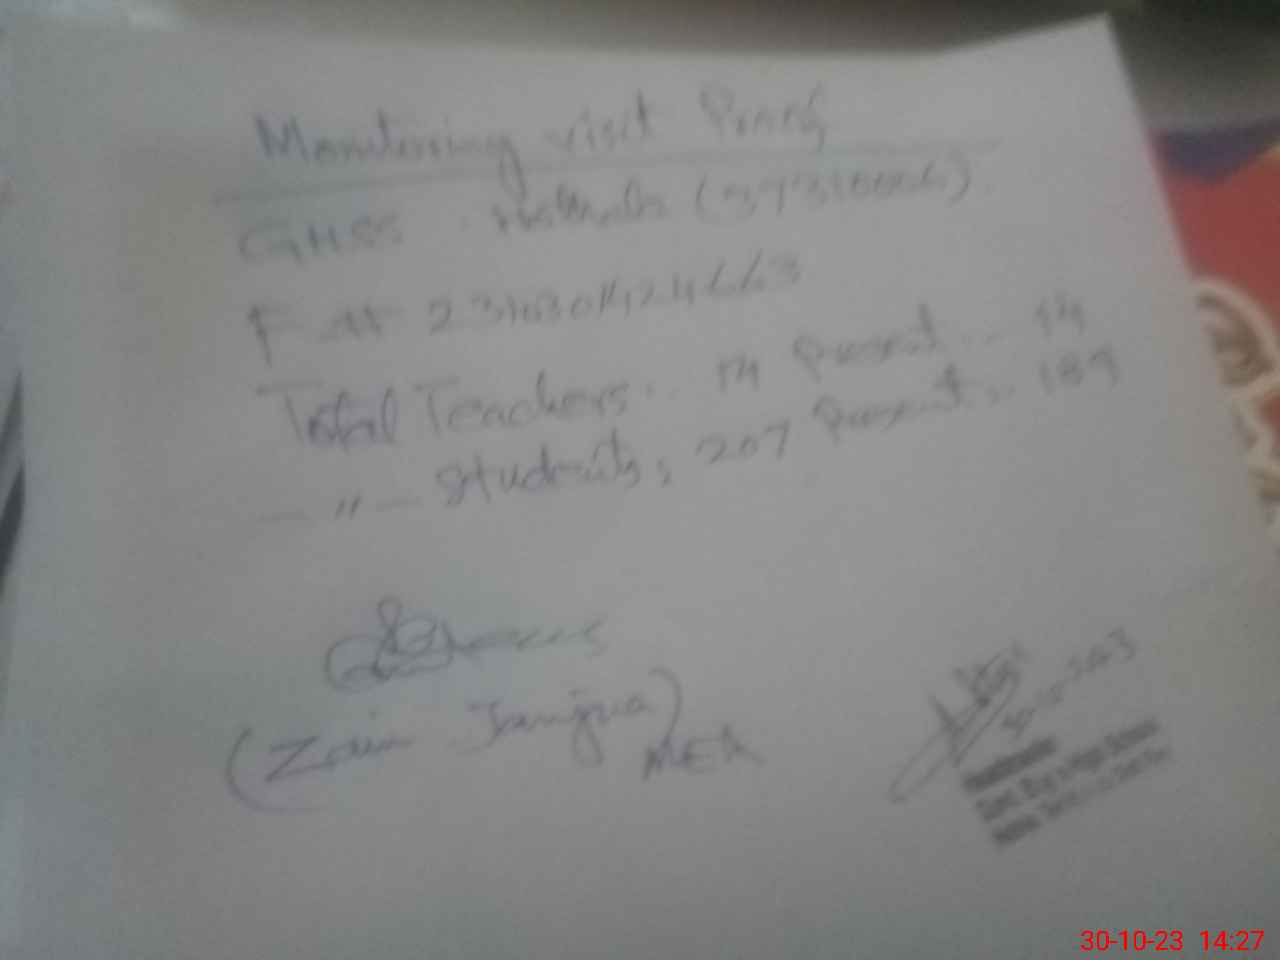 Monitoring visit Proof
GHSS (37310006)
F # 2310301424663
Total Teachers .. 14 Present .. 14
— " — Students : 207 Present .. 189
(Zain Janjua)
MEA
30-10-2023
30-10-23 14:27